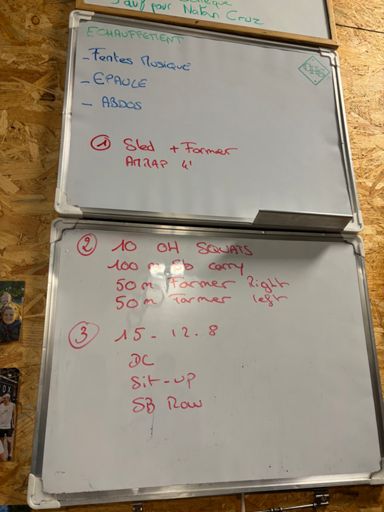 Sauf pour Natan Cruz
ECHAUFFEMENT
- Fentes Musique
- EPAULE
- ABDOS
① Sled + Farmer
AMRAP 4'
② 10 OH SQUATS
100 m Sb carry
50 m Farmer Right
50 m Farmer left
③ 15 - 12 - 8
DC
Sit-up
SB Row